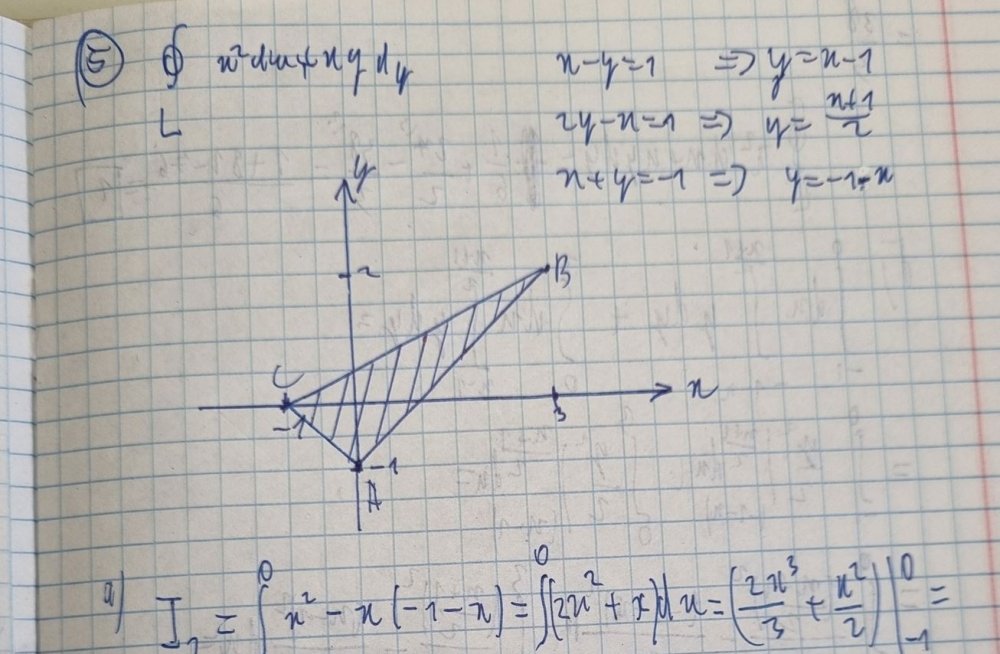 ⑤ ∮ x²dx+xydy x-y=1 => y=x-1
L 2y-x=1 => y=\frac{x+1}{2}
x+y=-1 => y=-1-x
y
2
B
C
x
-1
3
-1
A
a) I₁ = ∫⁰ x² - x(-1-x) = ∫⁰(2x²+x)dx = (\frac{2x³}{3} + \frac{x²}{2})|⁰₋₁ =